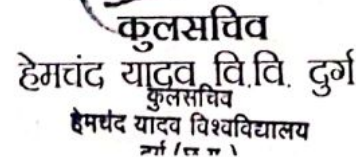 कुलसचिव
हेमचंद यादव वि.वि. दुर्ग
कुलसचिव
हेमचंद यादव विश्वविद्यालय